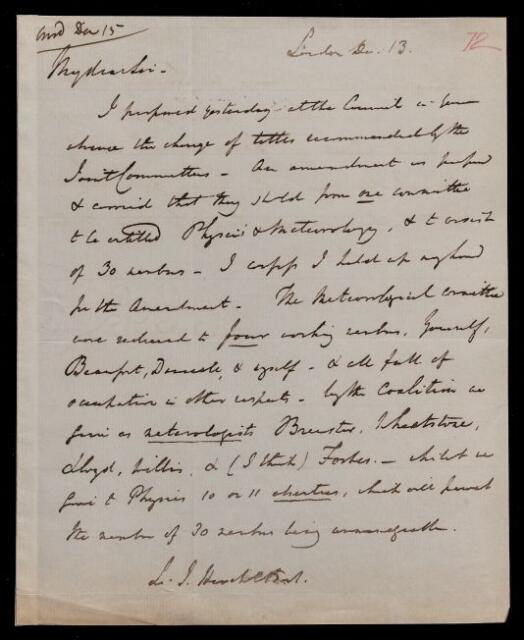 ansd Dec 15
London Dec. 13.
72
My dear Sir -
I proposed yesterday at the Council in your
absence the change of titles recommended by the
Joint Committees - An amendment was proposed
& carried that they shld form one committee
to be entitled Physics & Meteorology, & to consist
of 30 members - I confess I held up my hand
for the Amendment - The Meteorological committee
were reduced to four working members, Yourself,
Beaufort, Daniell, & myself - & all full of
occupation in other respects - by the Coalition we
gain as meteorologists Brewster, Wheatstone,
Lloyd, Willis, & (I think) Forbes. - whilst we
give to Physics 10 or 11 , which will prevent
the number of 30 members being unmanageable.
Sir J. Herschel Bart.